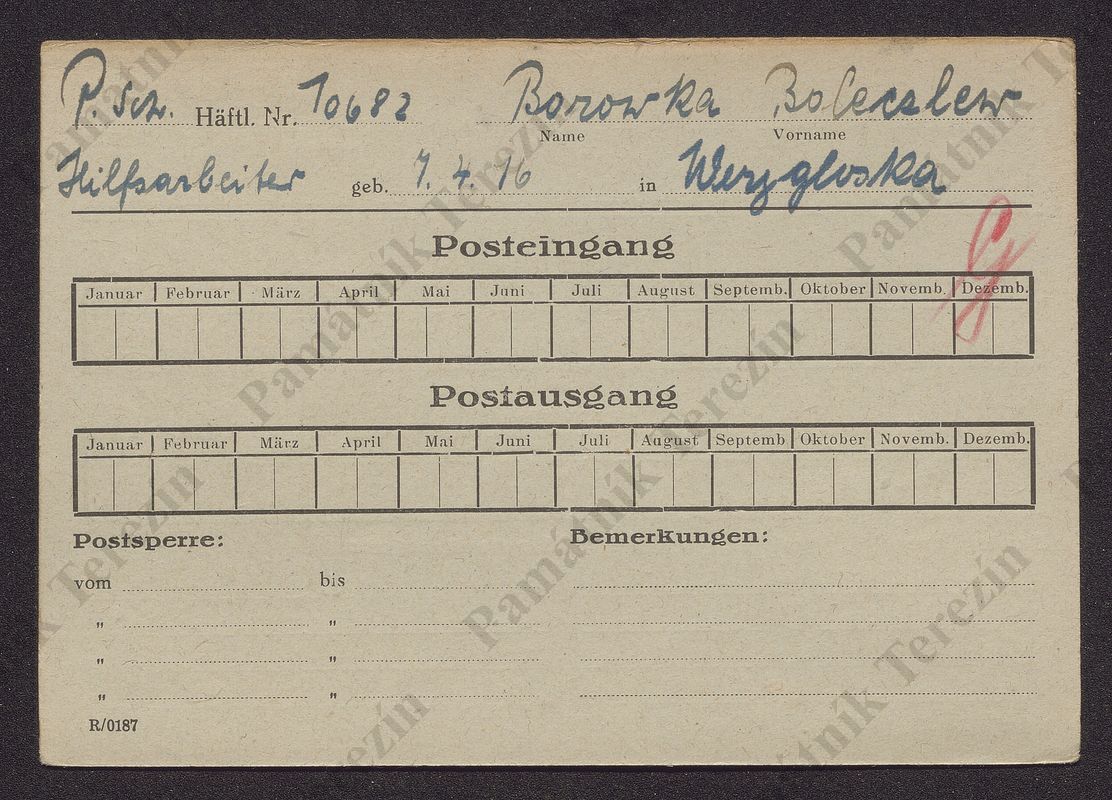 P. Sch. Häftl. Nr. 10682 Borowka Boleczlew
Name Vorname
Hilfsarbeiter geb. 7. 4. 16 in Werzgloska
Posteingang
Januar Februar März April Mai Juni Juli August Septemb. Oktober Novemb. Dezemb.
Postausgang
Januar Februar März April Mai Juni Juli August Septemb Oktober Novemb. Dezemb.
Postsperre: Bemerkungen:
vom bis
" "
" "
" "
R/0187
Památník Terezín